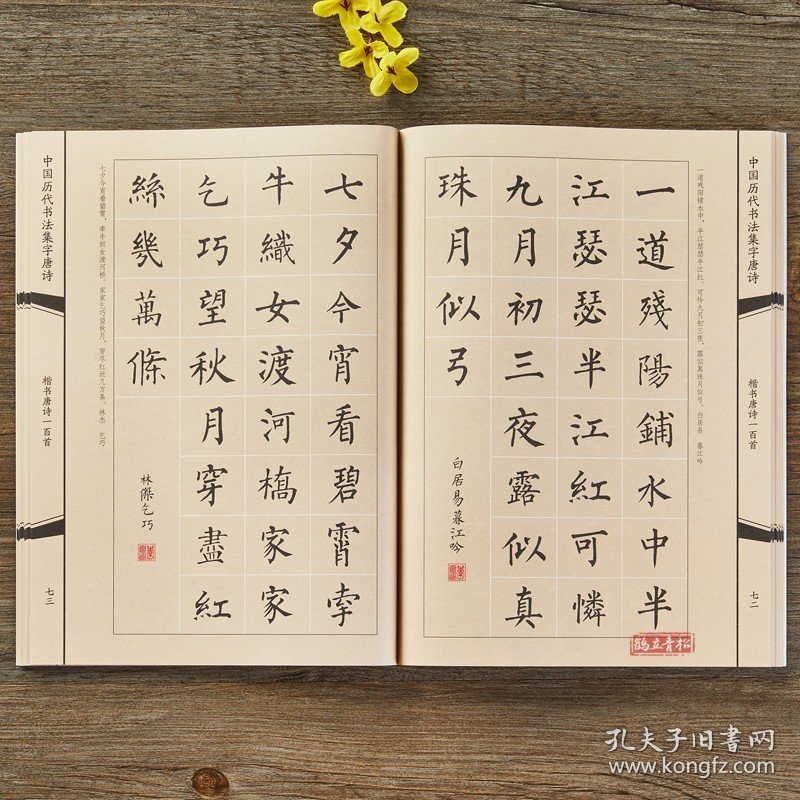 中国历代书法集字唐诗
楷书唐诗一百首
七二
一道残阳铺水中，半江瑟瑟半江红。可怜九月初三夜，露似真珠月似弓。白居易 暮江吟
一道殘陽鋪水中半
江瑟瑟半江紅可憐
九月初三夜露似真
珠月似弓
白居易暮江吟
七夕今宵看碧霄牽
牛織女渡河橋家家
乞巧望秋月穿盡紅
絲幾萬條
林傑乞巧
七夕今宵看碧霄，牵牛织女渡河桥。家家乞巧望秋月，穿尽红丝几万条。林杰 乞巧
中国历代书法集字唐诗
楷书唐诗一百首
七三
鹤立青松
孔夫子旧书网
www.kongfz.com